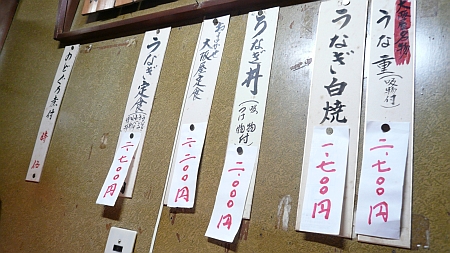 大阪屋名物
うな重
(吸物付)
二、七〇〇円
うなぎ白焼
一、七〇〇円
うなぎ丼
(吸物
つけ物付)
二、〇〇〇円
おまかせ
大阪屋定食
二、二〇〇円
うなぎ定食
二、七〇〇円
時価